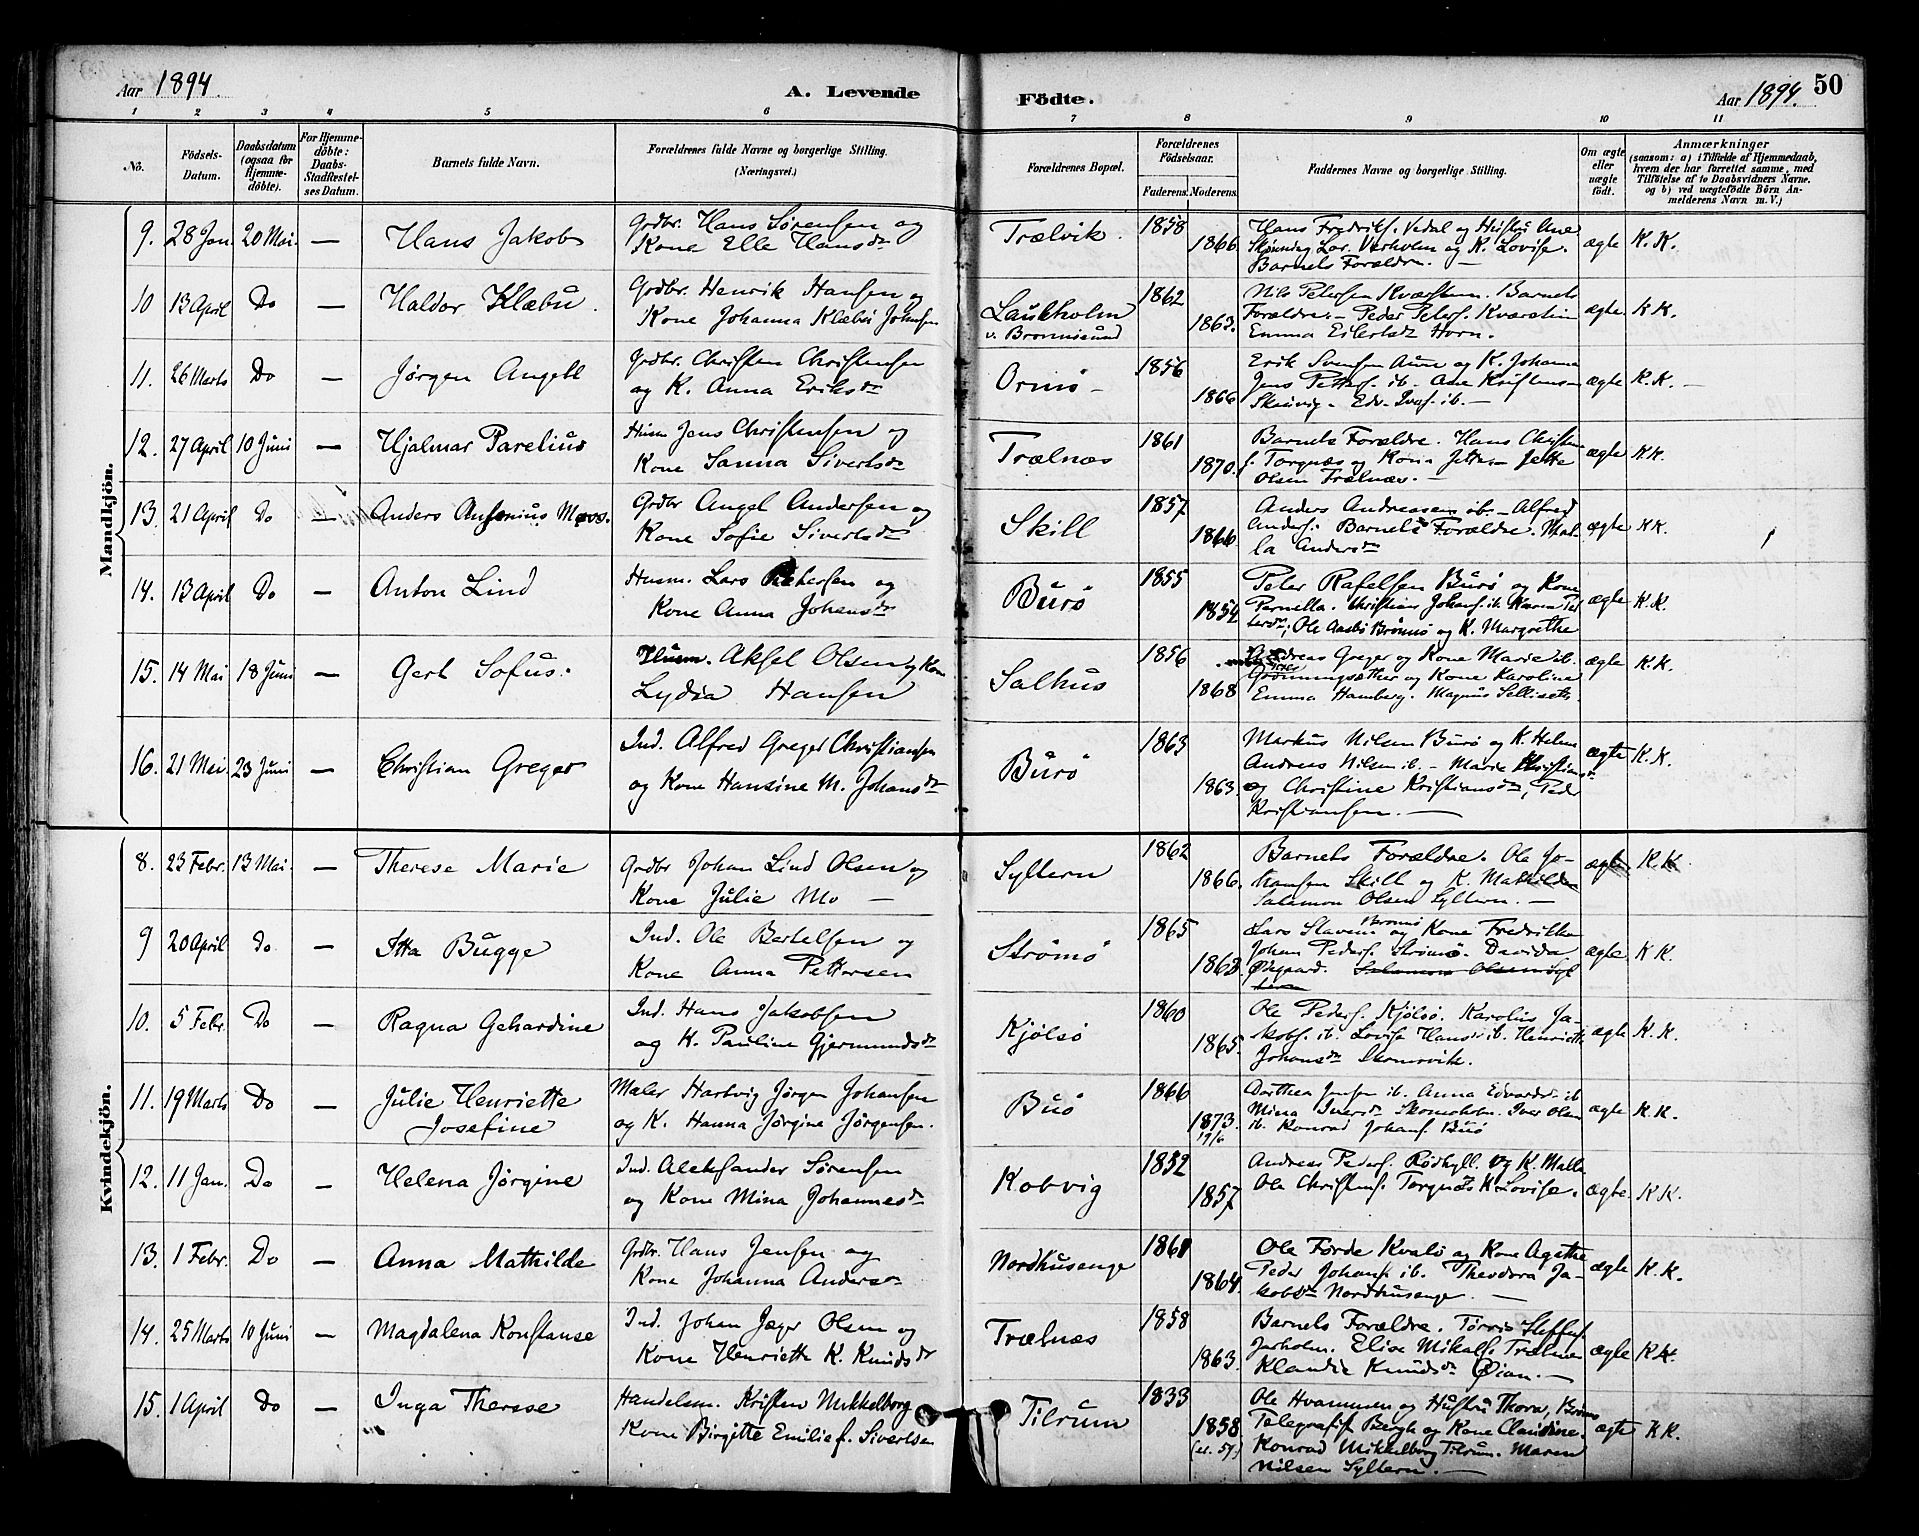 Aar 1894. A. Levende Födte. Aar 1894. 50
1 2 3 4 5 6 7 8 9 10 11
No. Födsels-Datum. Daabsdatum (ogsaa for Hjemme-döbte). For Hjemme-döbte: Daabs-Stadfæstel-ses Datum. Barnets fulde Navn. Forældrenes fulde Navne og borgerlige Stilling. (Næringsvei.) Forældrenes Bopæl. Forældrenes Födselsaar. Faderens. Moderens. Faddernes Navne og borgerlige Stilling. Om ægte eller uægte født. Anmærkninger (saasom: a) i Tilfælde af Hjemmedaab, hvem der har forrettet samme, med Tilföielse af to Daabsvidners Navne. og b) ved uægtefödte Börn An-melderens Navn m. V.)
Mandkjön.
9. 28 Jan. 20 Mai. — Hans Jakob Grdbr. Hans Sörensen og
Kone Elle Hansdr Trælvik. 1858 1866 Hans Fredriks. Vedal og Hustru Ane
Lar. Verholm og K. Lovise.
Barnets Forældre. — ægte K. K.
10 13 April Do — Haldor Klæbu. Grdbr. Henrik Hansen og
Kone Johanna Klæbu Johnsen Laukholm
v. Brönnösund 1862 1863. Nils Petersen Kværstein. Barnets
Forældre. — Peder Peters. Kværstein
Emma Eilertsdr Horn. ægte K K.
11. 26 Marts Do — Jörgen Angell Grdbr. Christen Christensen
og K. Anna Eriksdr Ormö — 1856 1866 Erik Svensen Aune og K. Johanna
Jens Petters. ib. Ane Kristens
Skeivig. Edv. Ivers. ib. — ægte K. K. —
12. 27 April 10 Juni — Hjalmar Parelius Husm Jens Christensen og
Kone Sanna Sivertsdr Trælnæs 1861 1870. Barnets Forældre. Hans Christens
Torgnæs og Kone Jette. — Jette
Olsen Trælnæs. — ægte K K.
13. 21 April Do — Anders Antonius Moos. Grdbr Angel Andersen og
Kone Sofie Sivertsdr Skill 1857 1866 Anders Andreassen ib. — Alfred
Anders. Barnets Forældre. Mal-
la Andersdr ægte K K.
14. 13 April Do — Anton Lind Husm. Lars Petersen og
Kone Anna Johansdr Burö 1855 1854 Peter Rafelsen Burö og Kone
Pernella. Christians Johans. ib. Maren Pet-
tersdr; Ole Aasbö Brönnö og K. Margrethe ægte K. K.
15. 14 Mai 18 Juni — Gert Sofus. Husm. Aksel Olsen og Kone
Lydia Hansen Salhus 1856 1868 Andreas Greger og Kone Marie ib.
Grönningsæther og Kone Karoline
Emma Hamberg. Magnus Sellisets ægte K. K.
16. 21 Mai. 23 Juni — Christian Greger Ind. Alfred Greger Christiansen
og Kone Hansine M. Johansdr Burö 1863 1863. Markus Nilsen Burö og K. Helene
Andreas Nilsen ib. — Marie Christiansdr
og Christine Kristiansdr, Peder
Kristiansen. — ægte K. K.
Kvindekjön.
8. 23 Febr. 13 Mai. — Therese Marie Grdbr Johan Lind Olsen og
Kone Julie Mo — Syltern 1862 1866. Barnets Forældre. Ole Jo-
hansen Skill og K. Mathilde
Salamon Olsen Syltern. — ægte K. K
9 20 April Do — Itta Bugge Ind. Ole Bertelsen og
Kone Anna Pettersen Strömö 1865 1863 Lars Slavens Brönnö og Kone Fredrikke
Johan Peders. Strömö. Davida
Ödegaard. Salamon Olsen Syl
tern ægte K K.
10. 5 Febr. Do — Ragna Gehardine Ind. Hans Jakobsen
og K. Pauline Gjermundsdr Kjölsö 1860 1865. Ole Peders. Kjölsö. Karolius Ja-
kobs. ib. Lovise Hansdr ib. Henriette
Johansdr Skomovik. ægte K. K.
11. 19 Marts Do — Julie Henriette
Josefine Maler Hartvig Jörgen Johansen
og K. Hanna Jörgine Jörgensen. Buö 1866 1873. 19/6 Dorthea Jensen ib. Anna Edvardsdr ib
Mina Iversdr Skomoholm. Iver Olsen
ib. Konrad Johans. Buö ægte K. K.
12. 11 Jan. Do — Helena Jörgine Ind. Aleksander Sörensen
og Kone Mina Johannesdr Kobvig 1852 1857 Andreas Peders. Rödhyll. og K. Malla
Ole Christens. Torgnæs K. Lovise. ægte. K K.
13. 1 Febr. Do — Anna Mathilde Grdbr. Hans Jensen og
Kone Johanna Andersdr Nordhusenge 1861 1864. Ole Förde Kvalö og Kone Agathe
Peder Johans ib. Theodora Ja-
kobsdr Nordhusenge. — ægte K. K.
14. 25 Marts 10 Juni — Magdalena Konstanse Ind. Johan Jæger Olsen og
Kone Henriette K. Knudsdr Trælnæs 1858 1863. Barnets Forældre. Törris Steffens.
Jarholm. Elise Mikals. Trælnæs
Klaudia Knudsdr Öian. — ægte K K.
15. 1 April Do — Inga Therese Handelsm. Kristen Mikkelborg
Kone Birgitte Emilie f. Sivertsen Tilrum 1833 1858 (el. 57) Ole Hvammen og Hustru Thora, Brönnö
Telegrafist Bergh og Kone Claudine.
Konrad Mikkelborg Tilrum. Maren
Nilsen Syltern. — ægte K K.